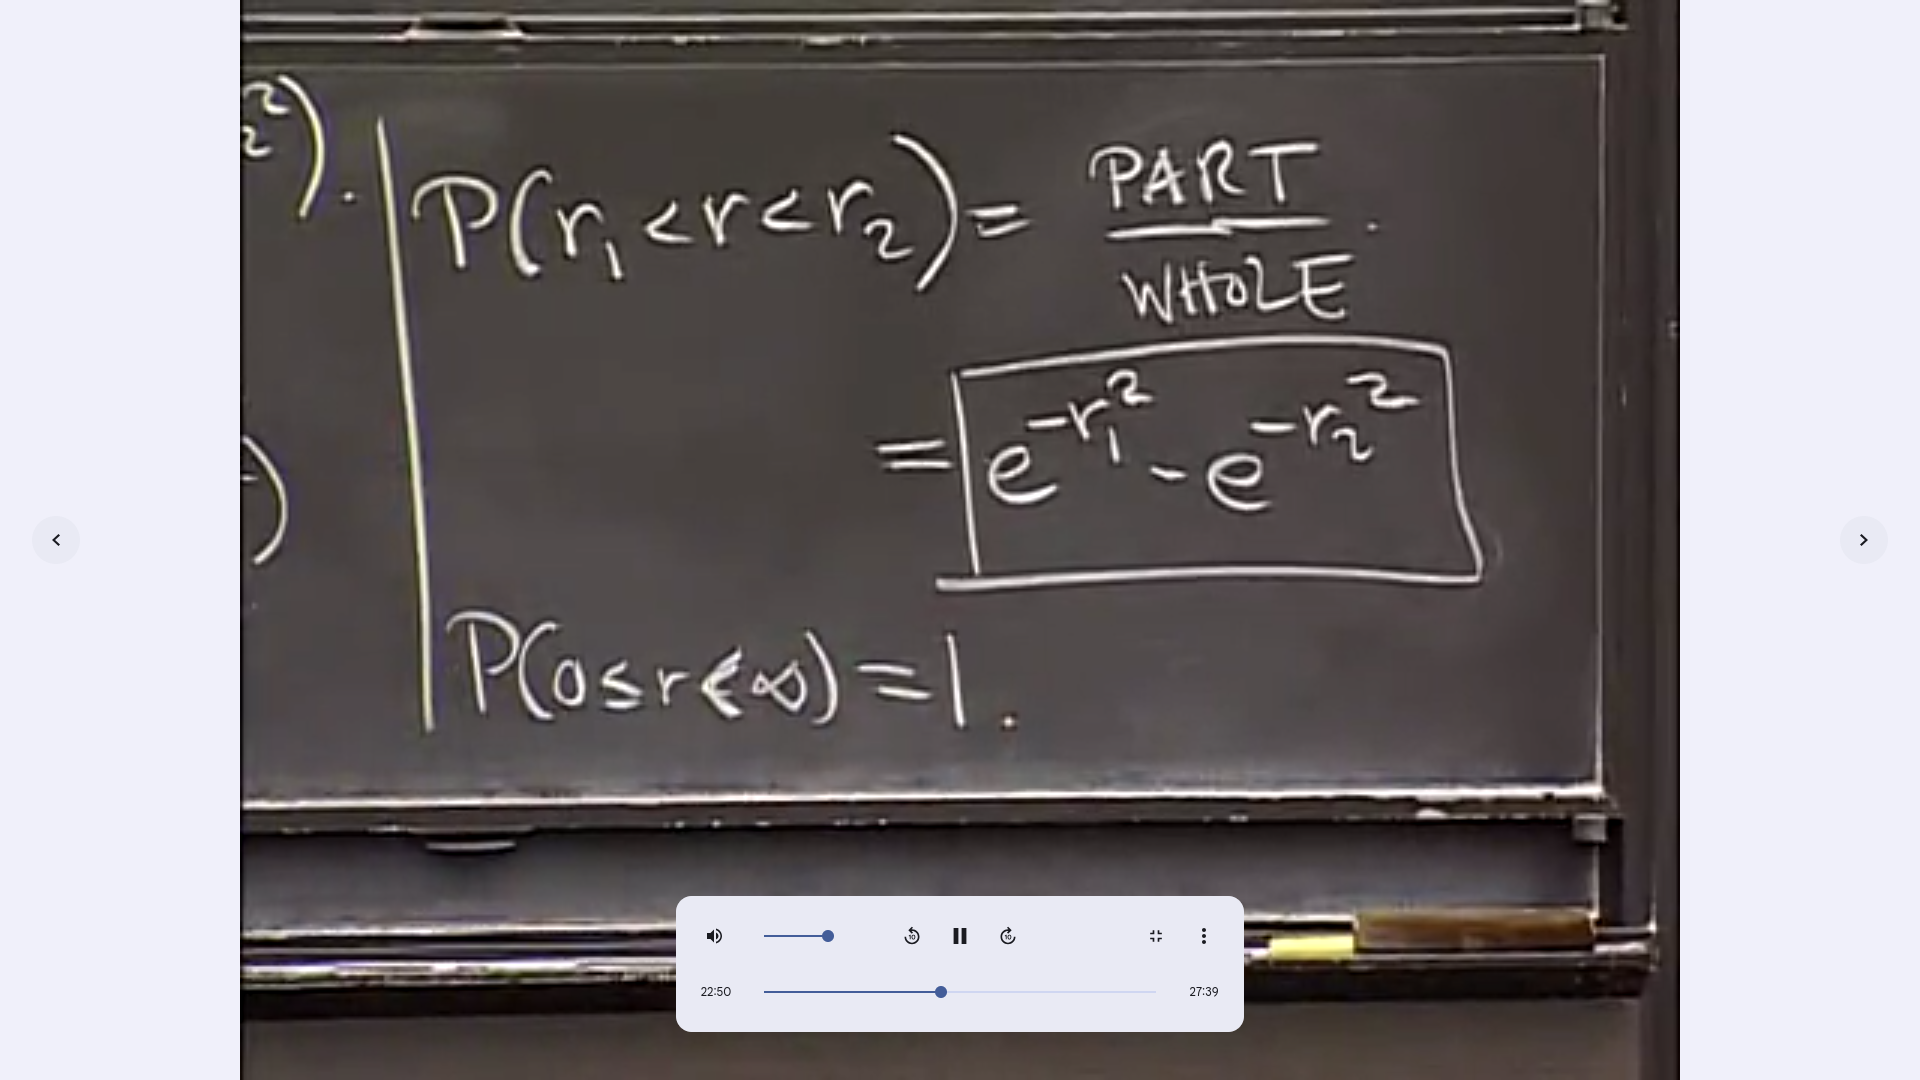 ₂²).
P(r₁<r<r₂)= PART
WHOLE
.
= e^-r₁² - e^-r₂²
)
P(0≤r<∞)=1.
10
10
22:50
27:39